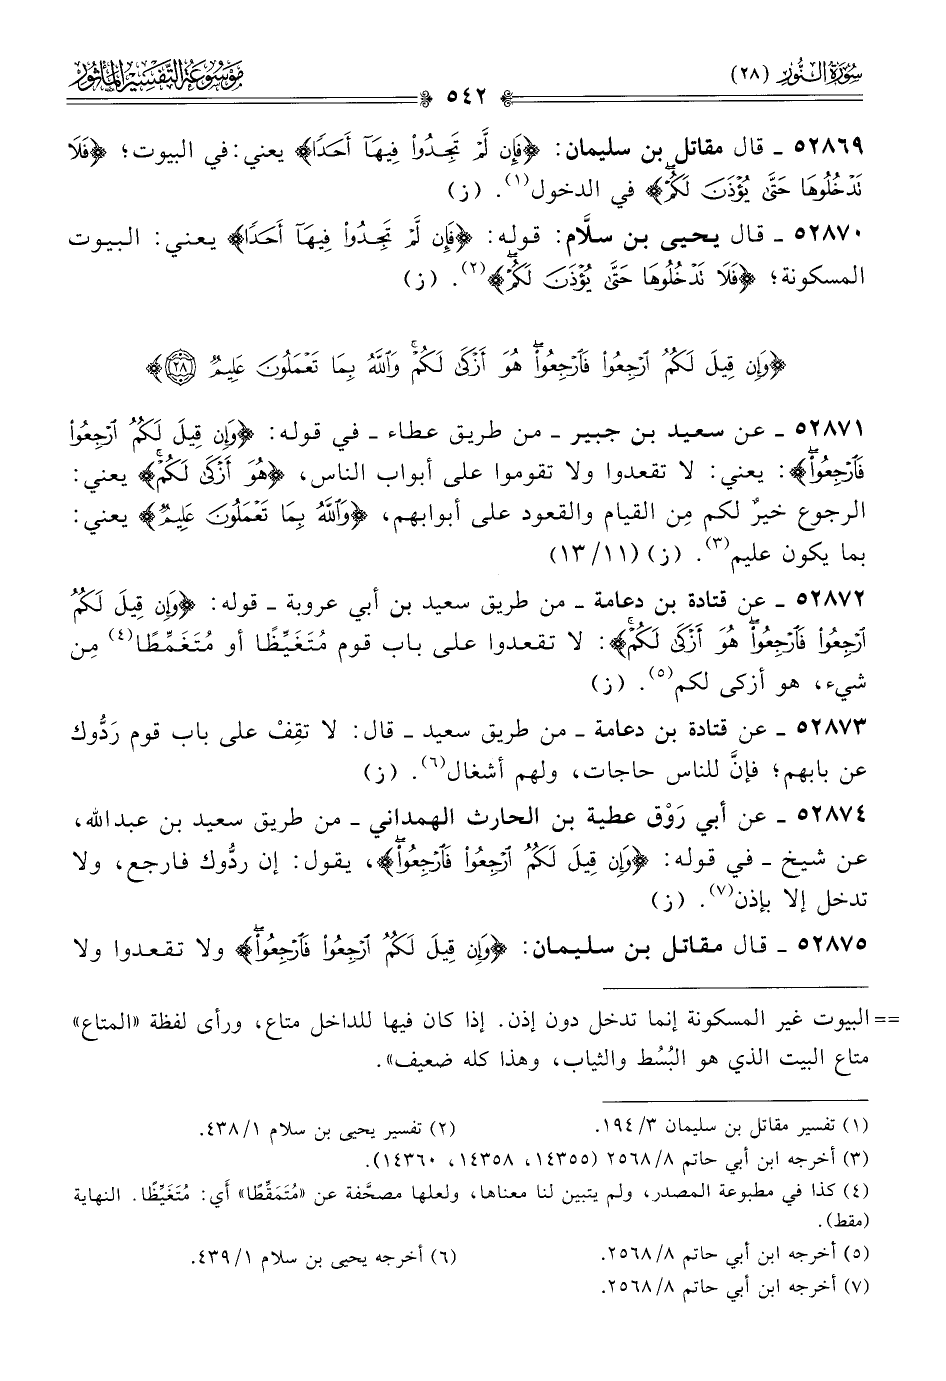 سُورَةُ النُّورِ (٢٨)
موسوعة التفسير المأثور
٥٤٢
٥٢٨٦٩ ـ قال مقاتل بن سليمان: ﴿فَإِن لَّمْ تَجِدُوا۟ فِيهَآ أَحَدًا﴾ يعني: في البيوت؛ ﴿فَلَا
تَدْخُلُوهَا حَتَّىٰ يُؤْذَنَ لَكُمْ﴾ في الدخول(١). (ز)
٥٢٨٧٠ ـ قال يحيى بن سلَّام: قوله: ﴿فَإِن لَّمْ تَجِدُوا۟ فِيهَآ أَحَدًا﴾ يعني: البيوت
المسكونة؛ ﴿فَلَا تَدْخُلُوهَا حَتَّىٰ يُؤْذَنَ لَكُمْ﴾(٢). (ز)
﴿وَإِن قِيلَ لَكُمُ ٱرْجِعُوا۟ فَٱرْجِعُوا۟ۖ هُوَ أَزْكَىٰ لَكُمْۚ وَٱللَّهُ بِمَا تَعْمَلُونَ عَلِيمٌ ٢٨﴾
٥٢٨٧١ ـ عن سعيد بن جبير ـ من طريق عطاء ـ في قوله: ﴿وَإِن قِيلَ لَكُمُ ٱرْجِعُوا۟
فَٱرْجِعُوا۟ۖ﴾: يعني: لا تقعدوا ولا تقوموا على أبواب الناس، ﴿هُوَ أَزْكَىٰ لَكُمْۚ﴾ يعني:
الرجوع خيرٌ لكم مِن القيام والقعود على أبوابهم، ﴿وَٱللَّهُ بِمَا تَعْمَلُونَ عَلِيمٌ﴾ يعني:
بما يكون عليم(٣). (ز) (١٣/١١)
٥٢٨٧٢ ـ عن قتادة بن دعامة ـ من طريق سعيد بن أبي عروبة ـ قوله: ﴿وَإِن قِيلَ لَكُمُ
ٱرْجِعُوا۟ فَٱرْجِعُوا۟ۖ هُوَ أَزْكَىٰ لَكُمْۚ﴾: لا تقعدوا على باب قوم مُتَغَيِّظًا أو مُتَغَمِّطًا(٤) مِن
شيء، هو أزكى لكم(٥). (ز)
٥٢٨٧٣ ـ عن قتادة بن دعامة ـ من طريق سعيد ـ قال: لا تقِفْ على باب قوم رَدُّوك
عن بابهم؛ فإنَّ للناس حاجات، ولهم أشغال(٦). (ز)
٥٢٨٧٤ ـ عن أبي رَوْق عطية بن الحارث الهمداني ـ من طريق سعيد بن عبدالله،
عن شيخ ـ في قوله: ﴿وَإِن قِيلَ لَكُمُ ٱرْجِعُوا۟ فَٱرْجِعُوا۟ۖ﴾، يقول: إن ردُّوك فارجع، ولا
تدخل إلا بإذن(٧). (ز)
٥٢٨٧٥ ـ قال مقاتل بن سليمان: ﴿وَإِن قِيلَ لَكُمُ ٱرْجِعُوا۟ فَٱرْجِعُوا۟ۖ﴾ ولا تقعدوا ولا
== البيوت غير المسكونة إنما تدخل دون إذن. إذا كان فيها للداخل متاع، ورأى لفظة «المتاع»
متاع البيت الذي هو البُسُط والثياب، وهذا كله ضعيف».
(١) تفسير مقاتل بن سليمان ٣/ ١٩٤.
(٢) تفسير يحيى بن سلام ١/ ٤٣٨.
(٣) أخرجه ابن أبي حاتم ٨/ ٢٥٦٨ (١٤٣٥٥، ١٤٣٥٨، ١٤٣٦٠).
(٤) كذا في مطبوعة المصدر، ولم يتبين لنا معناها، ولعلها مصحَّفة عن «مُتَمَقِّطًا» أي: مُتَغَيِّظًا. النهاية
(مقط).
(٥) أخرجه ابن أبي حاتم ٨/ ٢٥٦٨.
(٦) أخرجه يحيى بن سلام ١/ ٤٣٩.
(٧) أخرجه ابن أبي حاتم ٨/ ٢٥٦٨.